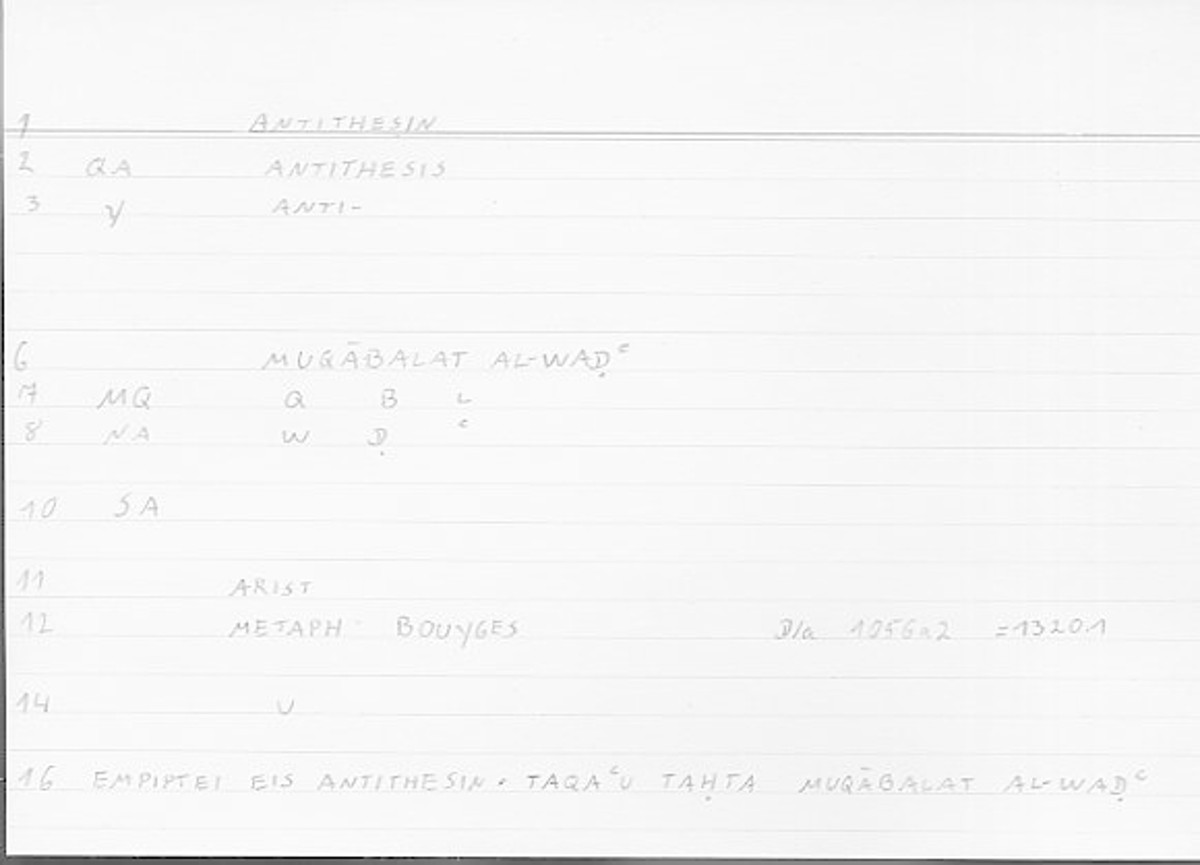 1 ANTITHESIN
2 QA ANTITHESIS
3 y ANTI-
6 MUQĀBALAT AL-WAḌʿ
7 MQ Q B L
8 NA W Ḍ ʿ
10 SA
11 ARIST
12 METAPH BOUYGES D/a 1056a2 =1320.1
14 U
16 EMPIPTEI EIS ANTITHESIN • TAQAʿU TAḤTA MUQĀBALAT AL-WAḌʿ